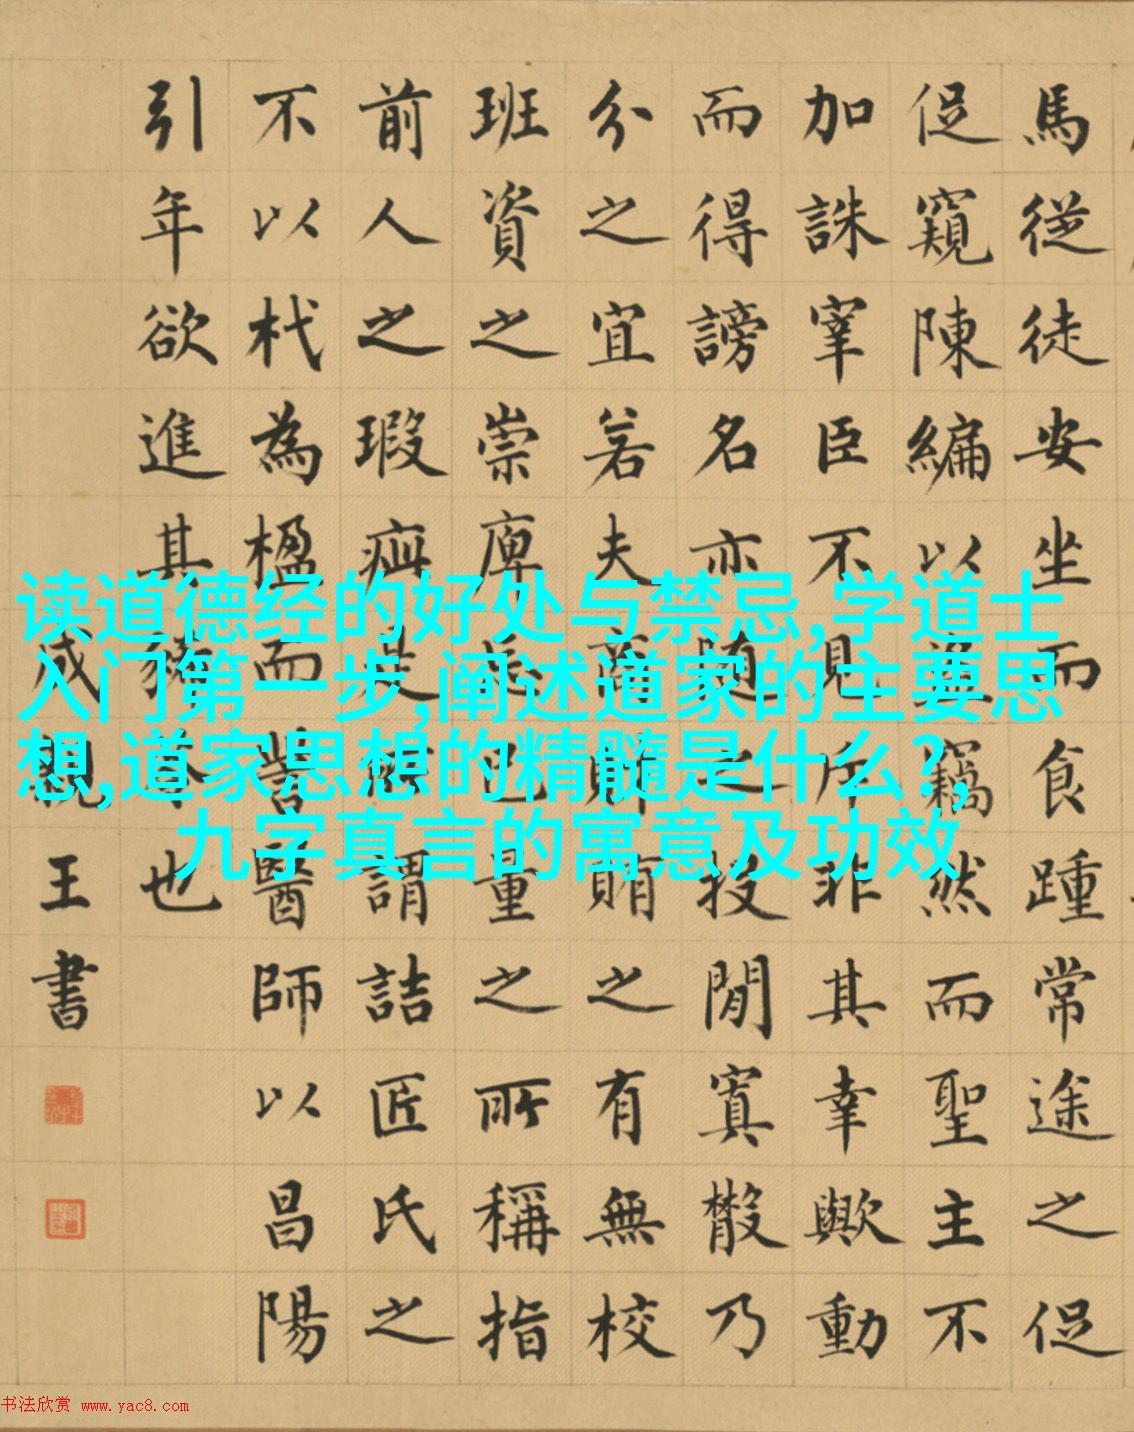 馬從徒安坐而食踵常途之促
促窺陳編以盜竊然而聖主不
加誅宰臣不見斥非其幸歟動
而得謗名亦隨之投閒寘散乃
分之宜若夫商財賄之有無校
班資之崇庳忘己量之所稱指
前人之瑕疵是所謂詰匠氏之
不以杙為楹而訾醫師以昌陽
引年欲進其豨苓也
成親王書
读道德经的好处与禁忌,学道士
入门第一步,阐述道家的主要思
想,道家思想的精髓是什么?,
九字真言的寓意及功效
书法欣赏 www.yac8.com